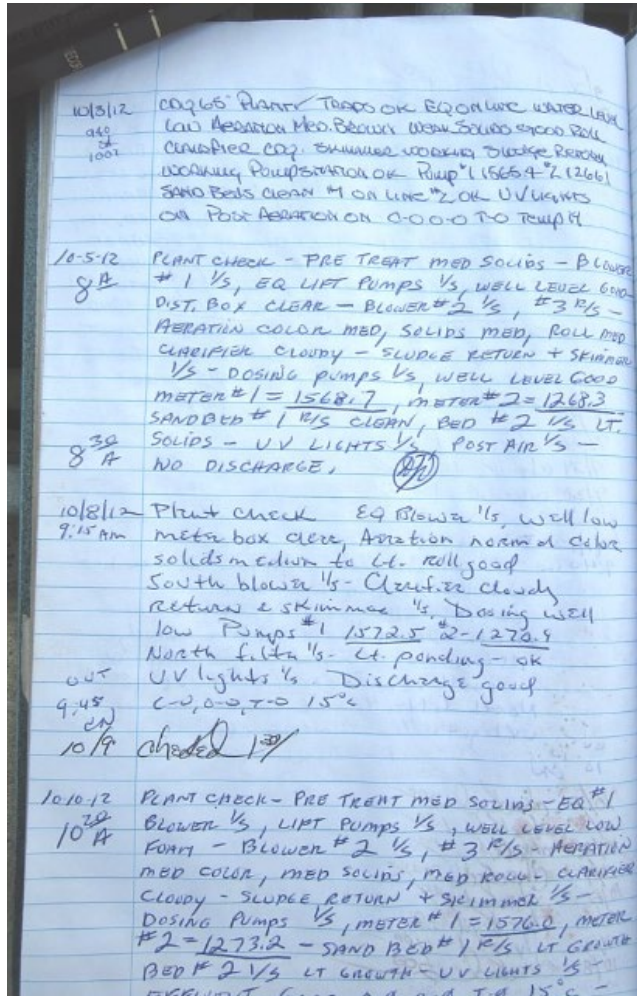 10/3/12 PLANT TRAPS OK EQ ON LINE WATER LEVEL
LOW AERATION MED. BROWN WEAK SOLIDS GOOD ROLL
1002 CLARIFIER SKIMMER WORKING SLUDGE RETURN
WORKING PUMPSTATION OK PUMP #1 15654 #2 12661
SAND BEDS CLEAN #1 ON LINE #2 OK UV LIGHTS
ON POST AERATION ON C-O O-O T-O TEMP 19
10-5-12 PLANT CHECK - PRE TREAT MED SOLIDS - BLOWER
8 A #1 I/S, EQ LIFT PUMPS I/S, WELL LEVEL GOOD
DIST. BOX CLEAR - BLOWER #2 I/S, #3 R/S -
AERATION COLOR MED, SOLIDS MED, ROLL MED
CLARIFIER CLOUDY - SLUDGE RETURN + SKIMMER
I/S - DOSING PUMPS I/S, WELL LEVEL GOOD
METER #1 = 1568.7, METER #2 = 1268.3
SANDBED #1 R/S CLEAN, BED #2 I/S LT.
8 30 A SOLIDS - UV LIGHTS I/S POST AIR I/S -
NO DISCHARGE.
10/8/12 Plant check EQ Blower I/S, well low
9:15 Am meter box clear, Aeration normal color
solids medium to Lt. roll good
South blower I/S - Clarifier cloudy
return & skimmer I/S, Dosing well
low Pumps #1 1572.5 #2 - 1270.4
North filter I/S - Lt. ponding - ok
out UV lights I/S Discharge good
9:45 C-O, O-O, T-O 15°c
10/9 checked
10-10-12 PLANT CHECK - PRE TREAT MED SOLIDS - EQ #1
10 20 A BLOWER I/S, LIFT PUMPS I/S, WELL LEVEL LOW
FOAM - BLOWER #2 I/S, #3 R/S - AERATION
MED COLOR, MED SOLIDS, MED ROLL - CLARIFIER
CLOUDY - SLUDGE RETURN + SKIMMER I/S -
DOSING PUMPS I/S, METER #1 = 1576.0, METER
#2 = 1273.2 - SAND BED #1 R/S LT GROWTH
BED #2 I/S LT GROWTH - UV LIGHTS I/S -
EFFLUENT T-O 15°C -